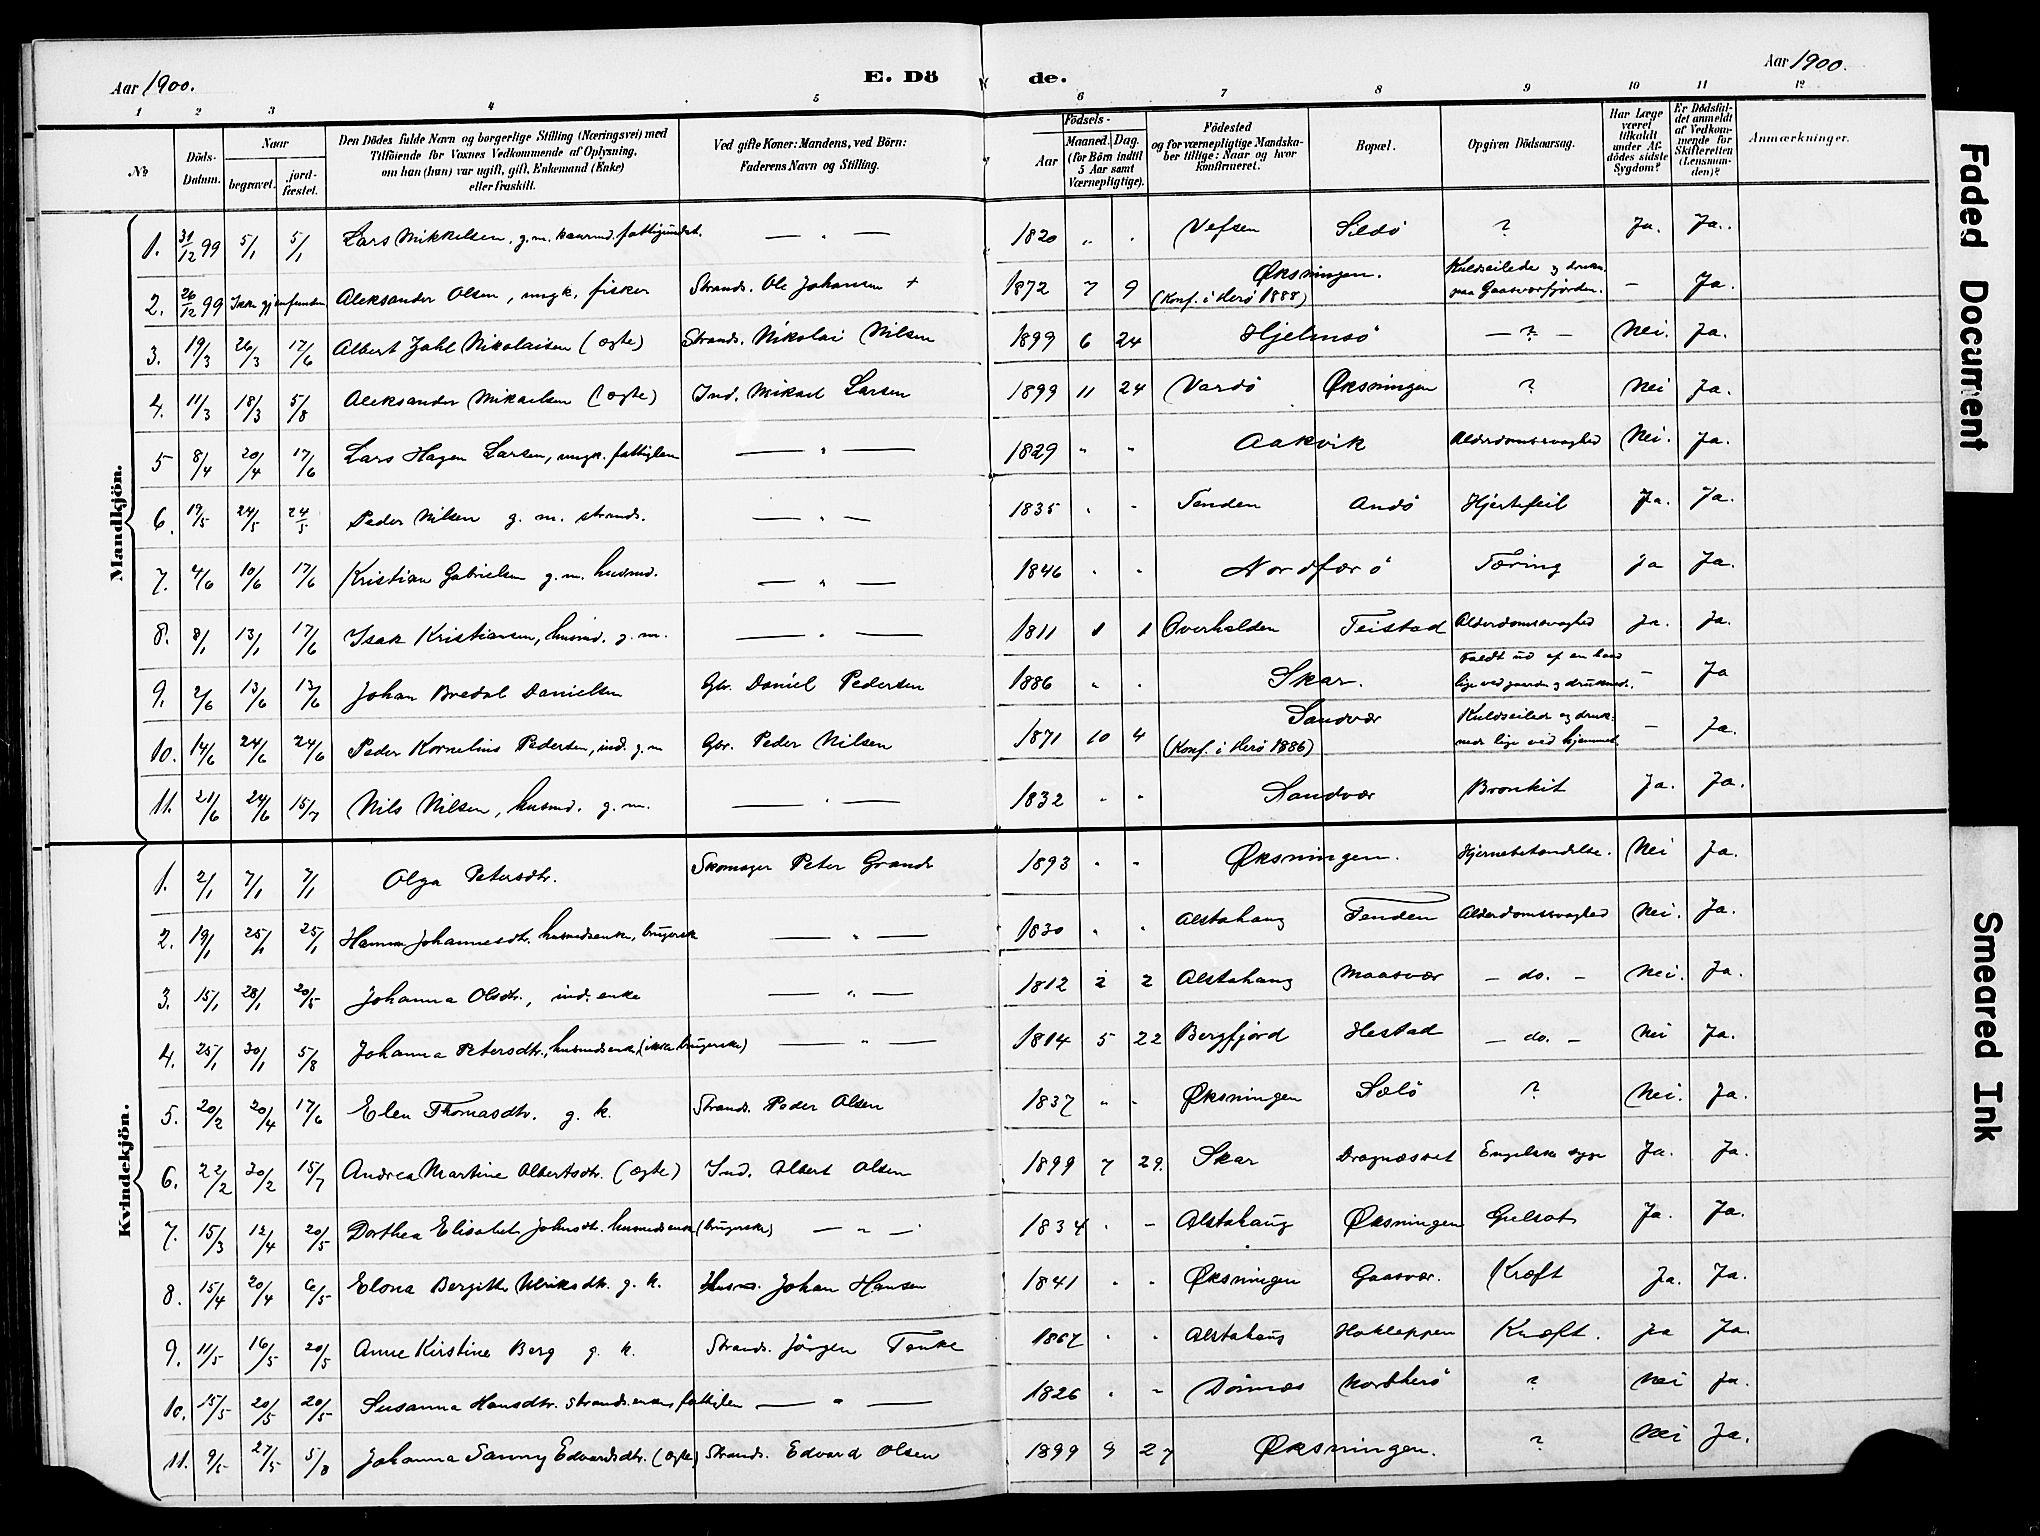 Aar 1900.
E. Dö de.
Aar 1900.
1 2 3 4 5 6 7 8 9 10 11 12
No
Döds-Datum.
Naar
begravet.
jord-fæstet.
Den Dödes fulde Navn og borgerlige Stilling (Næringsvei) med
Tilföiende for Voxnes Vedkommende af Oplysning,
om han (hun) var ugift, gift, Enkemand (Enke)
eller fraskilt.
Ved gifte Koner: Mandens, ved Börn:
Faderens Navn og Stilling.
Födsels-
Aar
Maaned. Dag.
(for Börn indtil
5 Aar samt
Værnepligtige).
Födested
og for værnepligtige Mandska-
ber tillige: Naar og hvor
konfirmeret.
Bopæl.
Opgiven Dödsaarsag.
Har Læge
været
tilkaldt
under Af-
dödes sidste
Sygdom?
Er Dödsfal-
det anmeldt
af Vedkom-
mende for
Skifteretten
(Lensman-
den)?
Anmærkninger.
Mandkjön.
1. 31/12 99 5/1 5/1 Lars Mikkelsen, g.m. — " — 1820 " " Vefsen Sildö ? Ja. Ja.
2. 26/12 99 Ikke gjenfunden Aleksander Olsen, ungk. fisker Strands. Ole Johansen + 1872 7 9 Øksningen. (Konf. i Herö 1888) Kuldseilede og drukn. paa Gaasværfjorden. — Ja.
3. 19/3 26/3 17/6 Albert Jahl Nikolaisen (ægte) Strands. Nikolai Nilsen 1899 6 24 Hjelmsö — ? — Nei. Ja.
4. 11/3 18/3 5/8 Aleksander Mikaelsen (ægte) Ind. Mikael Larsen 1899 11 24 Vardö Øksningen ? Nei Ja.
5 8/4 20/4 17/6 Lars Hagen Larsen, ungk. fattiglem — " — 1829 " " Aakvik Alderdomssvaghed Nei. Ja.
6. 19/5 24/5 24/5 Peder Nilsen g. m. strands. — " — 1835 " " Tenden Andö Hjertefeil Ja. Ja.
7. 4/6 10/6 17/6 Kristian Gabrielsen g.m. husmd. — " — 1846 " " Nordfærö Tæring ja Ja.
8. 8/1 13/1 17/6 Isak Kristiansen, husmd. g.m. — " — 1811 1 1 Overhalden Teistad Alderdomssvaghed Ja. Ja.
9. 2/6 13/6 13/6 Johan Bredal Danielsen Gbr. Daniel Pedersen 1886 " " Skar. Faldt ud af en baad lige ved gaarden og druknede. — Ja
10. 14/6 24/6 24/6 Peder Kornelius Pedersen, ind. g.m Gbr. Peder Nilsen 1871 10 4 Sandvær (Konf. i Herö 1886) Kuldseilede og druknede lige ved hjemmet — Ja.
11. 21/6 24/6 15/7 Nils Nilsen, husmd. g.m. — " — 1832 " " Sandvær Bronkit Ja. Ja.
Kvindekjön.
1. 2/1 7/1 7/1 Olga Petersdtr. Skomager Peter Grande 1893 " " Øksningen. Nei Ja.
2. 19/1 25/1 25/1 Johannesdtr. husmdsenke, brugerske — " — 1830 " " Alstahaug Tenden Alderdomssvaghed Nei. Ja.
3. 15/1 28/1 20/5 Johanna Olsdtr., ind. enke — " — 1812 2 2 Alstahaug Maasvær — do. — Nei. Ja.
4. 25/1 30/1 5/8 Johanna Petersdtr., husmdsenke (ikke brugerske) — " — 1814 5 22 Bergfjord Hestad — do. — Nei Ja.
5. 20/2 20/4 17/6 Elen Thomasdtr. g. k. Strands. Peder Olsen 1837 " " Øksningen Sælö ? Nei. Ja.
6. 22/2 20/2 15/7 Andrea Martine Albertsdtr. (ægte) Ind. Albert Olsen 1899 7 29. Skar Dragnæsset Engelske syge Ja. Ja.
7. 15/3 12/4 20/5 Dorthea Elisabet Johnsdtr. husmdsenke (brugerske) — " — 1834 " — Alstahaug Øksningen Gulsot Ja. Ja.
8. 15/4 20/4 6/5 Elona Bergitte Ulriksdtr. g. k. Husmd. Johan Hansen 1841 " " Øksningen Gaasvær. Kræft Ja. Ja.
9. 11/5 16/5 20/5 Anne Kirstine Berg g. k. Strands. Jörgen Tenke 1867 " " Alstahaug Kræft. ja Ja.
10. 15/5 20/5 20/5 Susanna Hansdtr. strands.enke, fattiglem — " — 1826 " " Dönnæs Nordherö ? Nei Ja.
11. 9/5 27/5 5/8 Johanna Sanny Edvardsdtr. (ægte) Strands. Edvard Olsen 1899 9 27 Øksningen. ? Nei Ja.
Faded Document
Smeared Ink